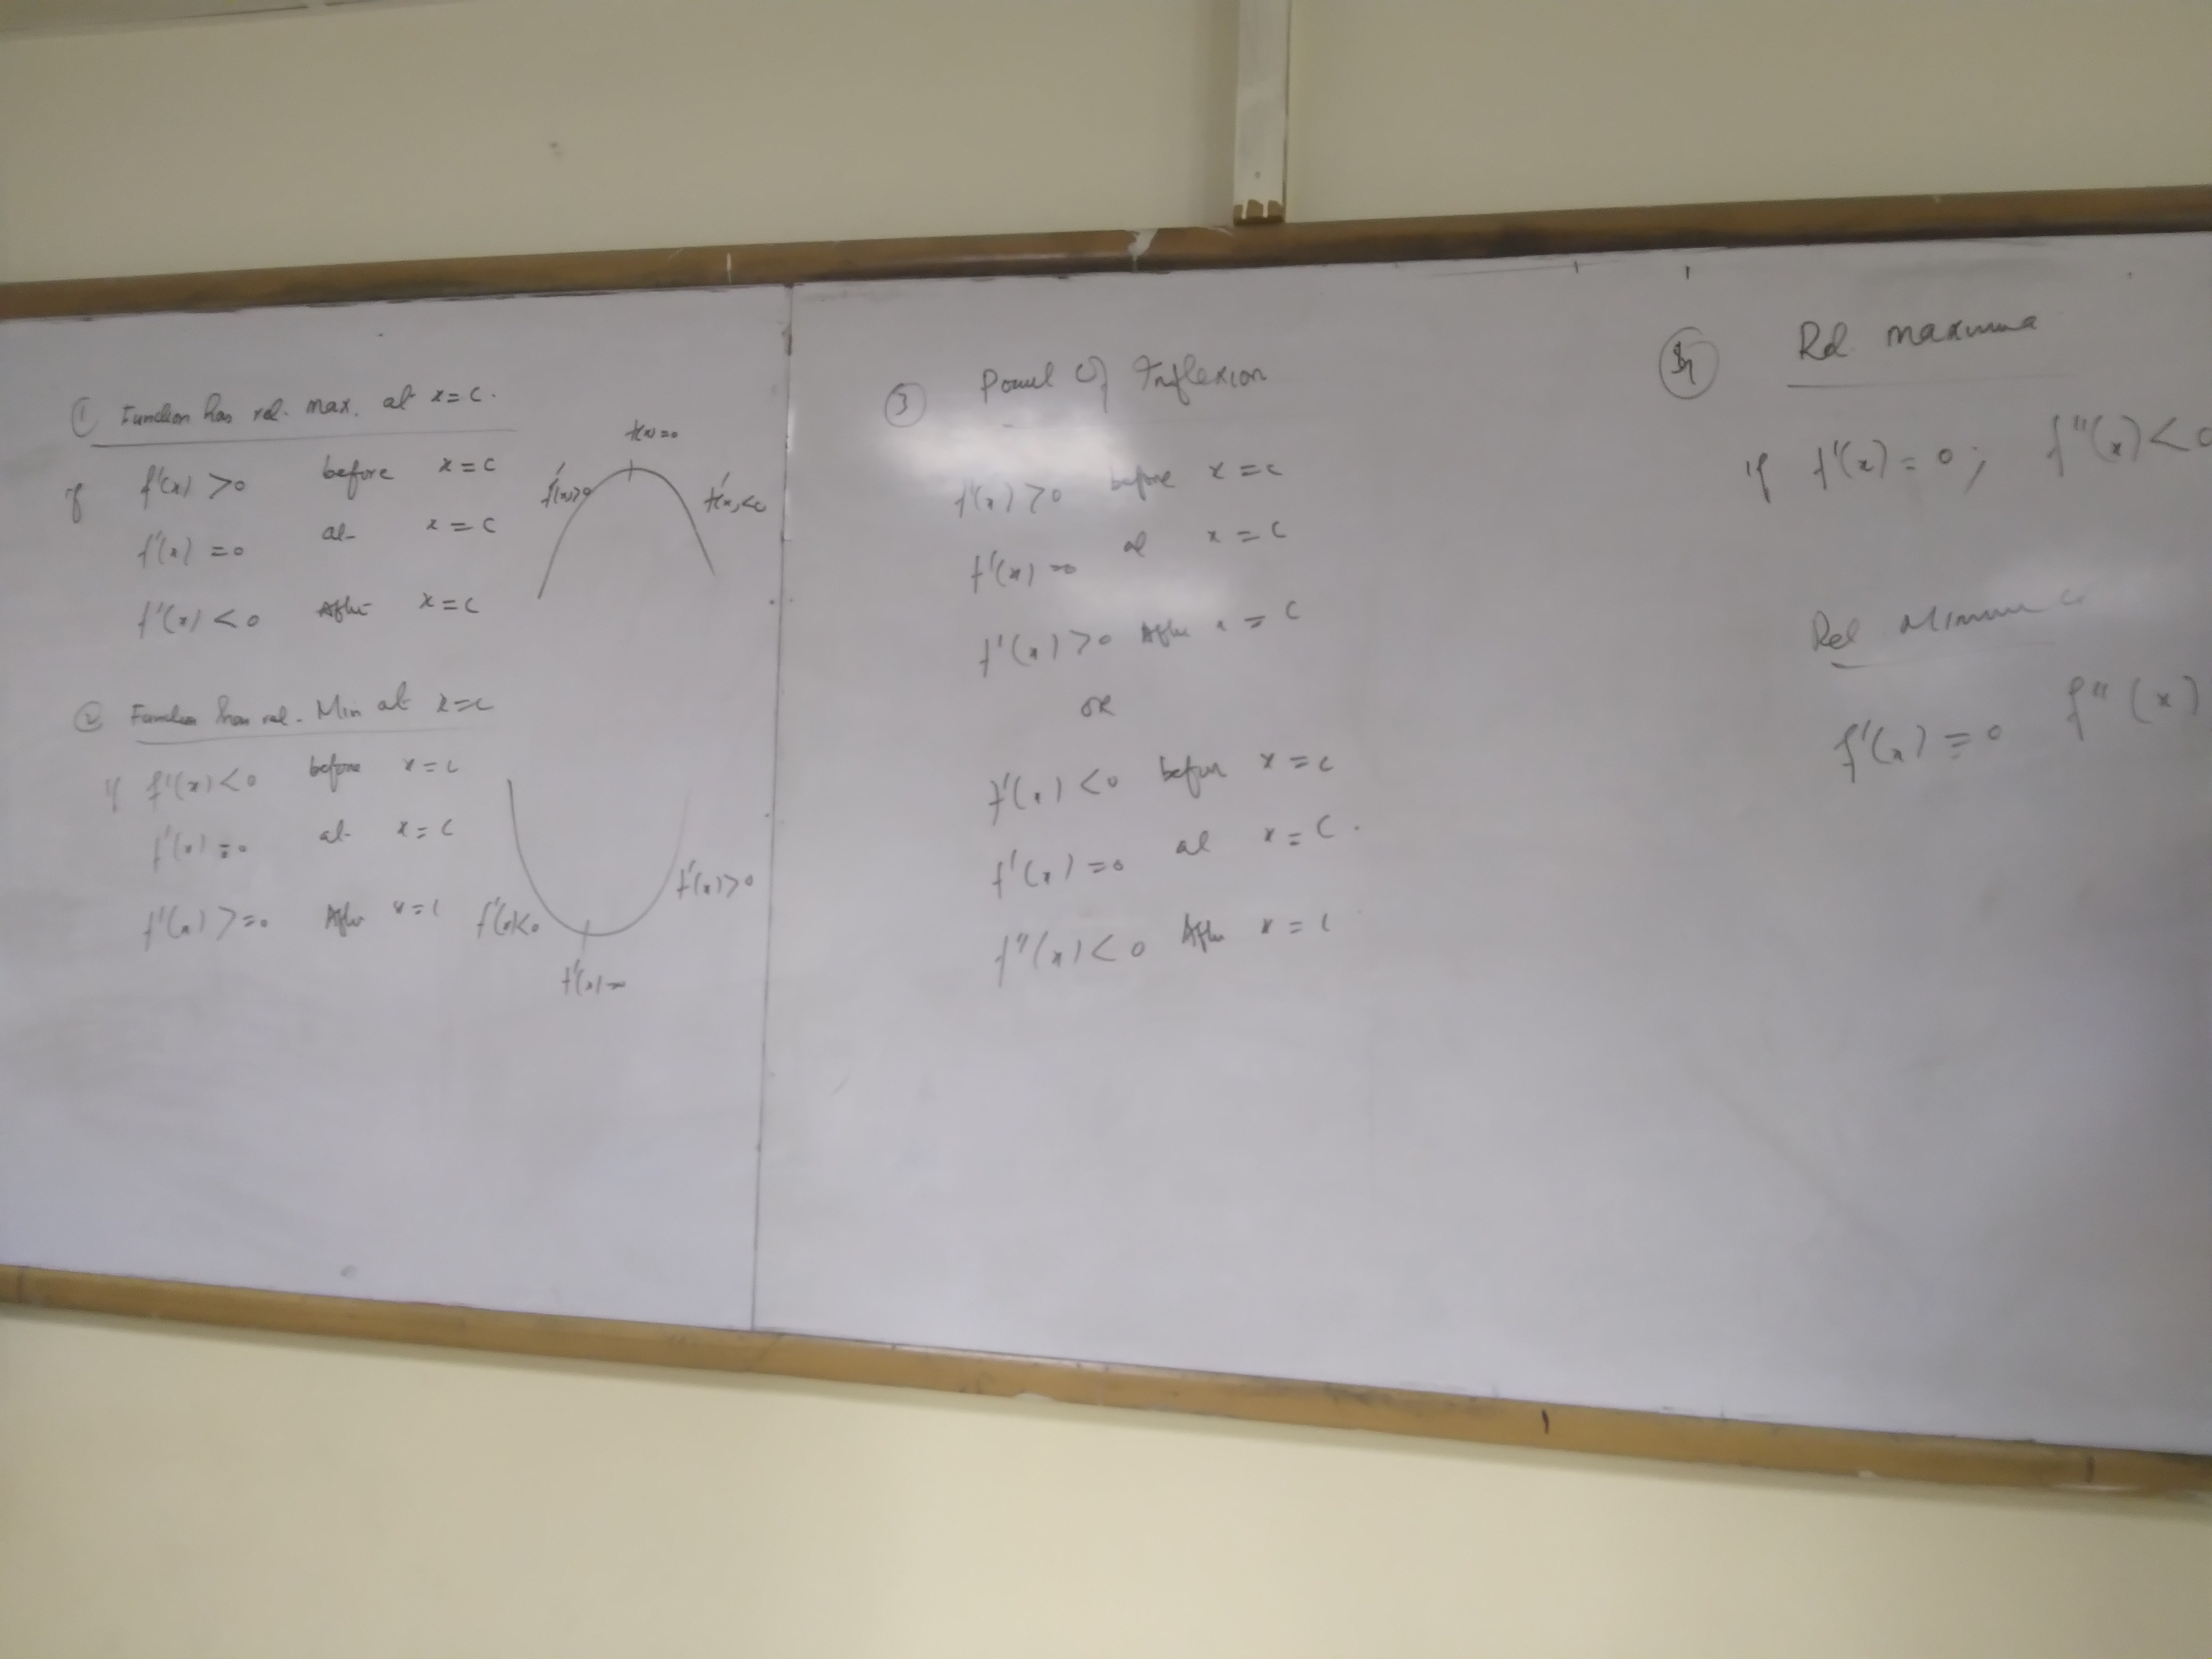 ① Function has rel. max. at x=c.
if f'(x) >0 before x=c
f'(x) =0 at x=c
f'(x) <0 After x=c
f(x)=0
f'(x)>0
f'(x)<0
② Function has rel. Min at x=c
if f'(x) <0 before x=c
f'(x) =0 at x=c
f'(x) >=0 After x=c
f'(x)<0
f'(x)>0
f'(x)=0
③ Point of Inflexion
f'(x) >0 before x=c
f'(x) =0 at x=c
f'(x) >0 After x=c
OR
f'(x) <0 before x=c
f'(x) =0 at x=c.
f''(x) <0 After x=c
Rel maxima
if f'(x) = 0; f''(x) <0
Rel Minimum
f'(x) = 0 f''(x)